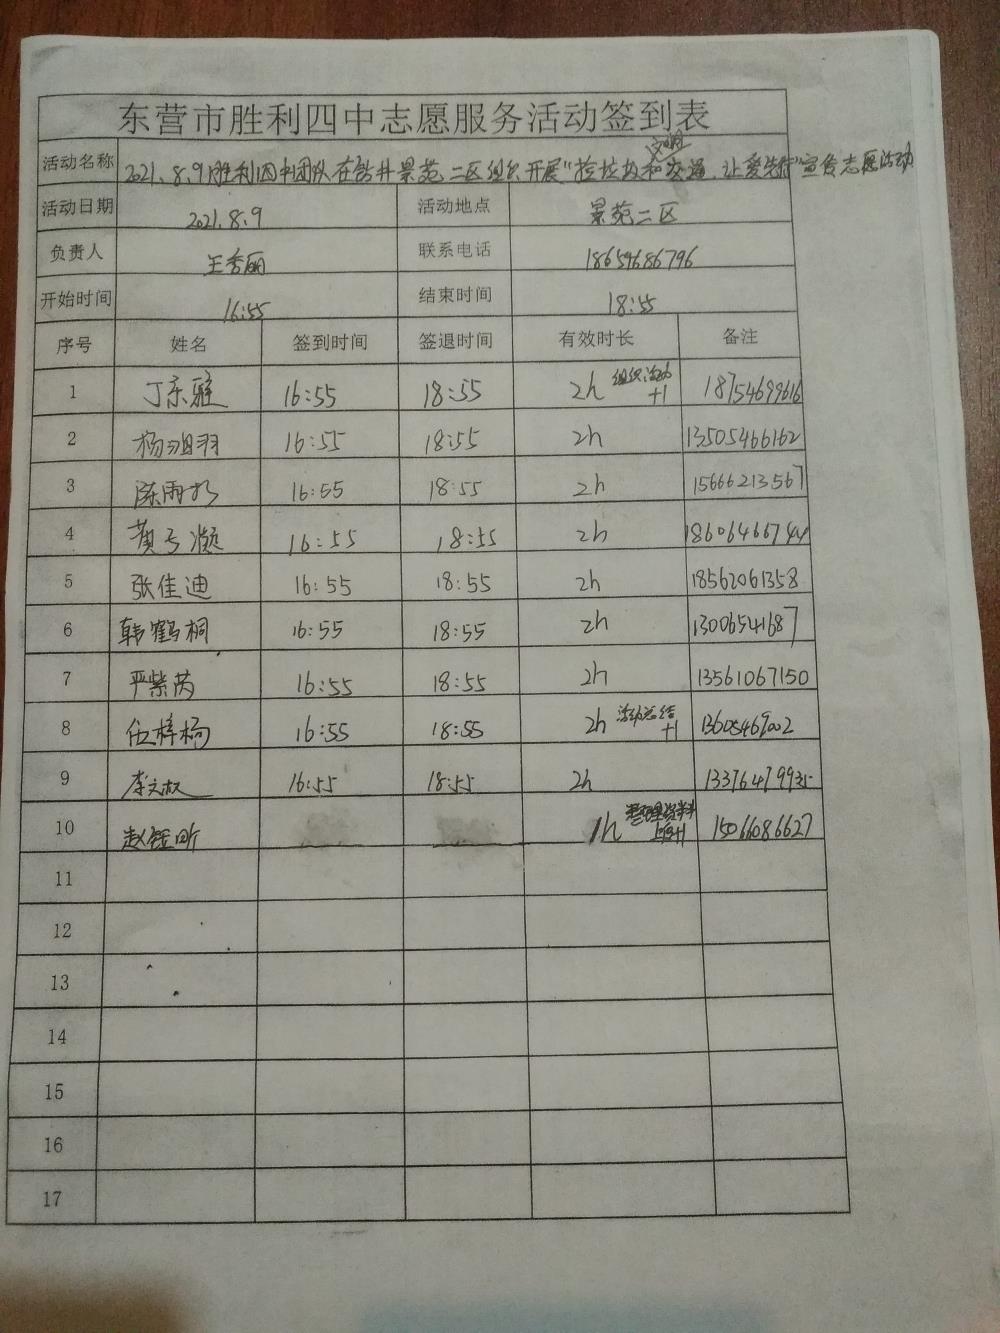 东营市胜利四中志愿服务活动签到表
活动名称 2021.8.9胜利四中团队在钻井景苑二区组织开展"捡垃圾和文明交通,让爱先行"宣传志愿活动
活动日期 2021.8.9 活动地点 景苑二区
负责人 王秀丽 联系电话 18654686796
开始时间 16:55 结束时间 18:55
序号 姓名 签到时间 签退时间 有效时长 备注
1 丁东 16:55 18:55 2h 组织活动+1 18754699616
2 杨羽 16:55 18:55 2h 13505466162
3 陈雨 16:55 18:55 2h 15666213567
4 黄 16:55 18:55 2h 18606466744
5 张佳迪 16:55 18:55 2h 18562061358
6 韩鹤桐 16:55 18:55 2h 13006541687
7 严紫芮 16:55 18:55 2h 13561067150
8 伍梓 16:55 18:55 2h 活动总结+1 13605469002
9 李文 16:55 18:55 2h 13376479935
10 赵昕 1h 整理资料 15066086627
11
12
13
14
15
16
17